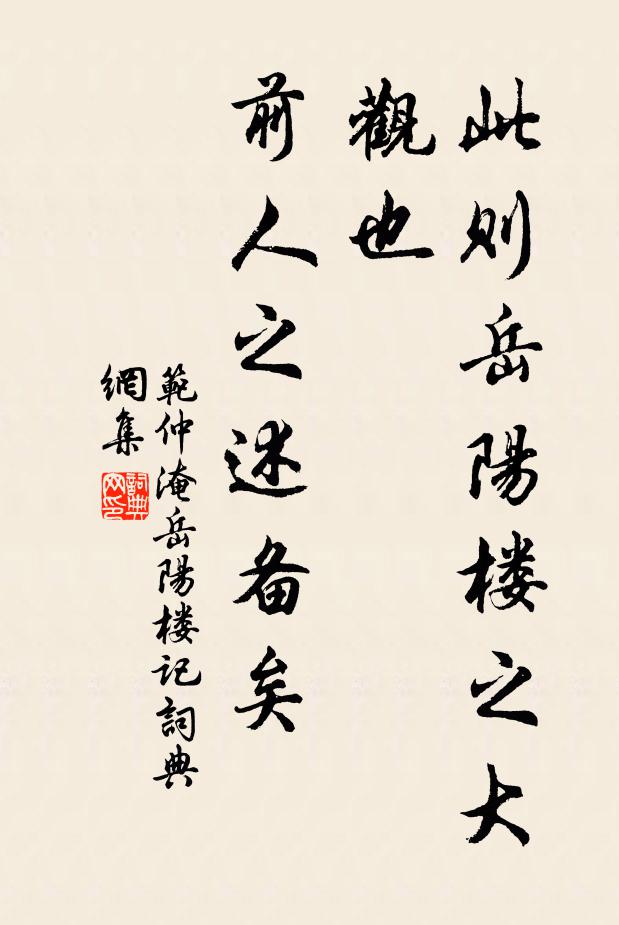 此则岳陽楼之大
觀也
前人之述备矣
範仲淹岳陽楼记詞典
網集
詞典
网印